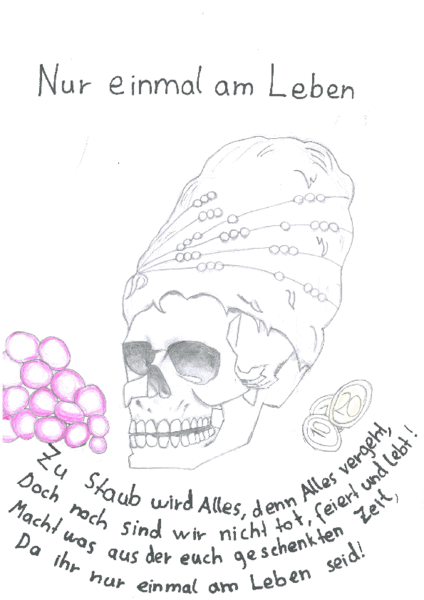 Nur einmal am Leben
20
10
Zu Staub wird Alles, denn Alles vergeht,
Doch noch sind wir nicht tot, feiert und lebt!
Macht was aus der euch geschenkten Zeit,
Da ihr nur einmal am Leben seid!